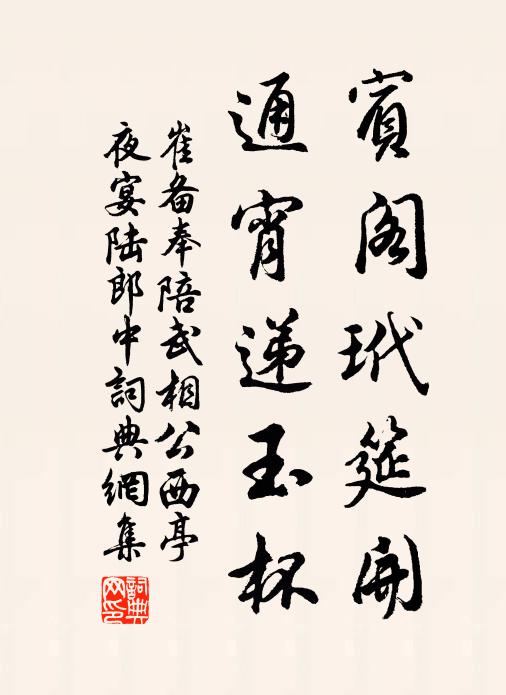 賓閣玳筵開
通宵遞玉杯
崔备奉陪武相公西亭
夜宴陆郎中詞典網集
詞典
网印